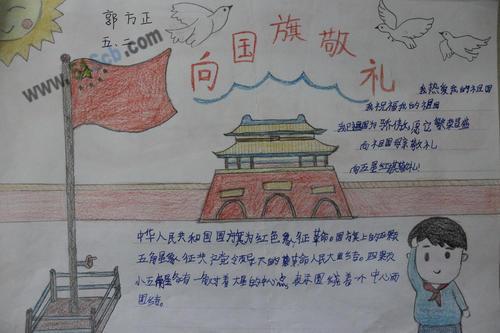 郭方正
五.二
向国旗敬礼
我热爱我的祖国
我祝福我的祖国
向祖国母亲敬礼
向五星红旗敬礼
中华人民共和国国旗为红色象征革命。国旗上的五颗
五角星象征共产党领导大的革命人民大团结。四颗
小五角星各有一角对着大星的中心点，表示围绕着一个中心而
团结。